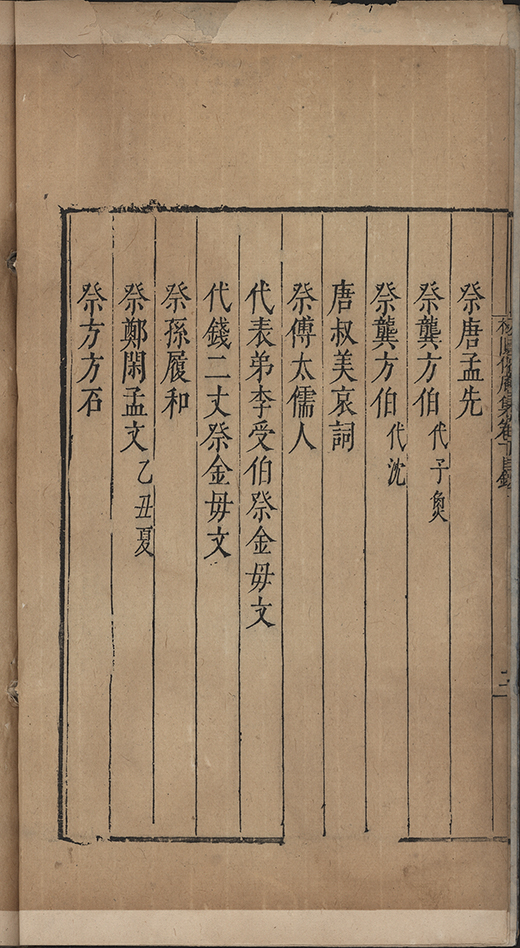 松圓偈庵集卷下目錄
二
祭唐孟先
祭龔方伯代子魚
祭龔方伯代沈
唐叔美哀詞
祭傅太儒人
代表弟李受伯祭金毋文
代錢二丈祭金毋文
祭孫履和
祭鄭閑孟文乙丑夏
祭方方石